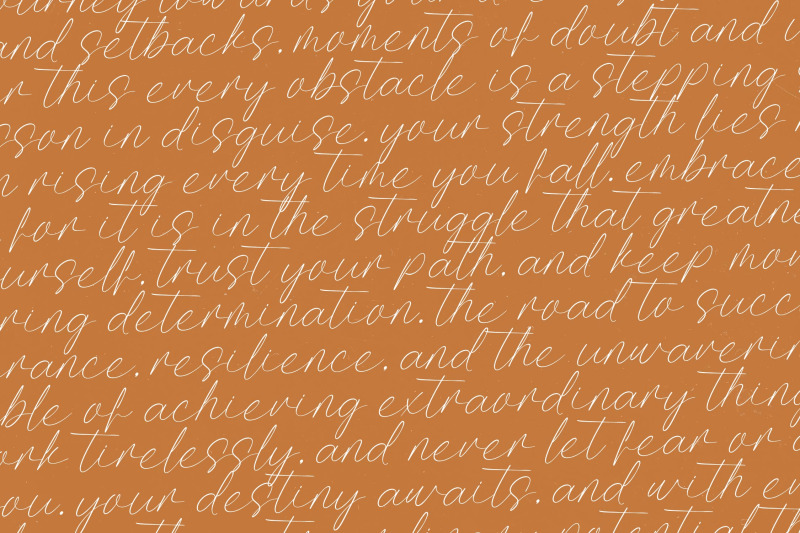 and setbacks. moments of doubt and
this every obstacle is a stepping
in disguise. your strength lies
rising every time you fall. embrace
for it is in the struggle that
trust your path. and keep
determination. the road to
resilience. and the
of achieving extraordinary
tirelessly. and never let fear or
your destiny awaits. and with